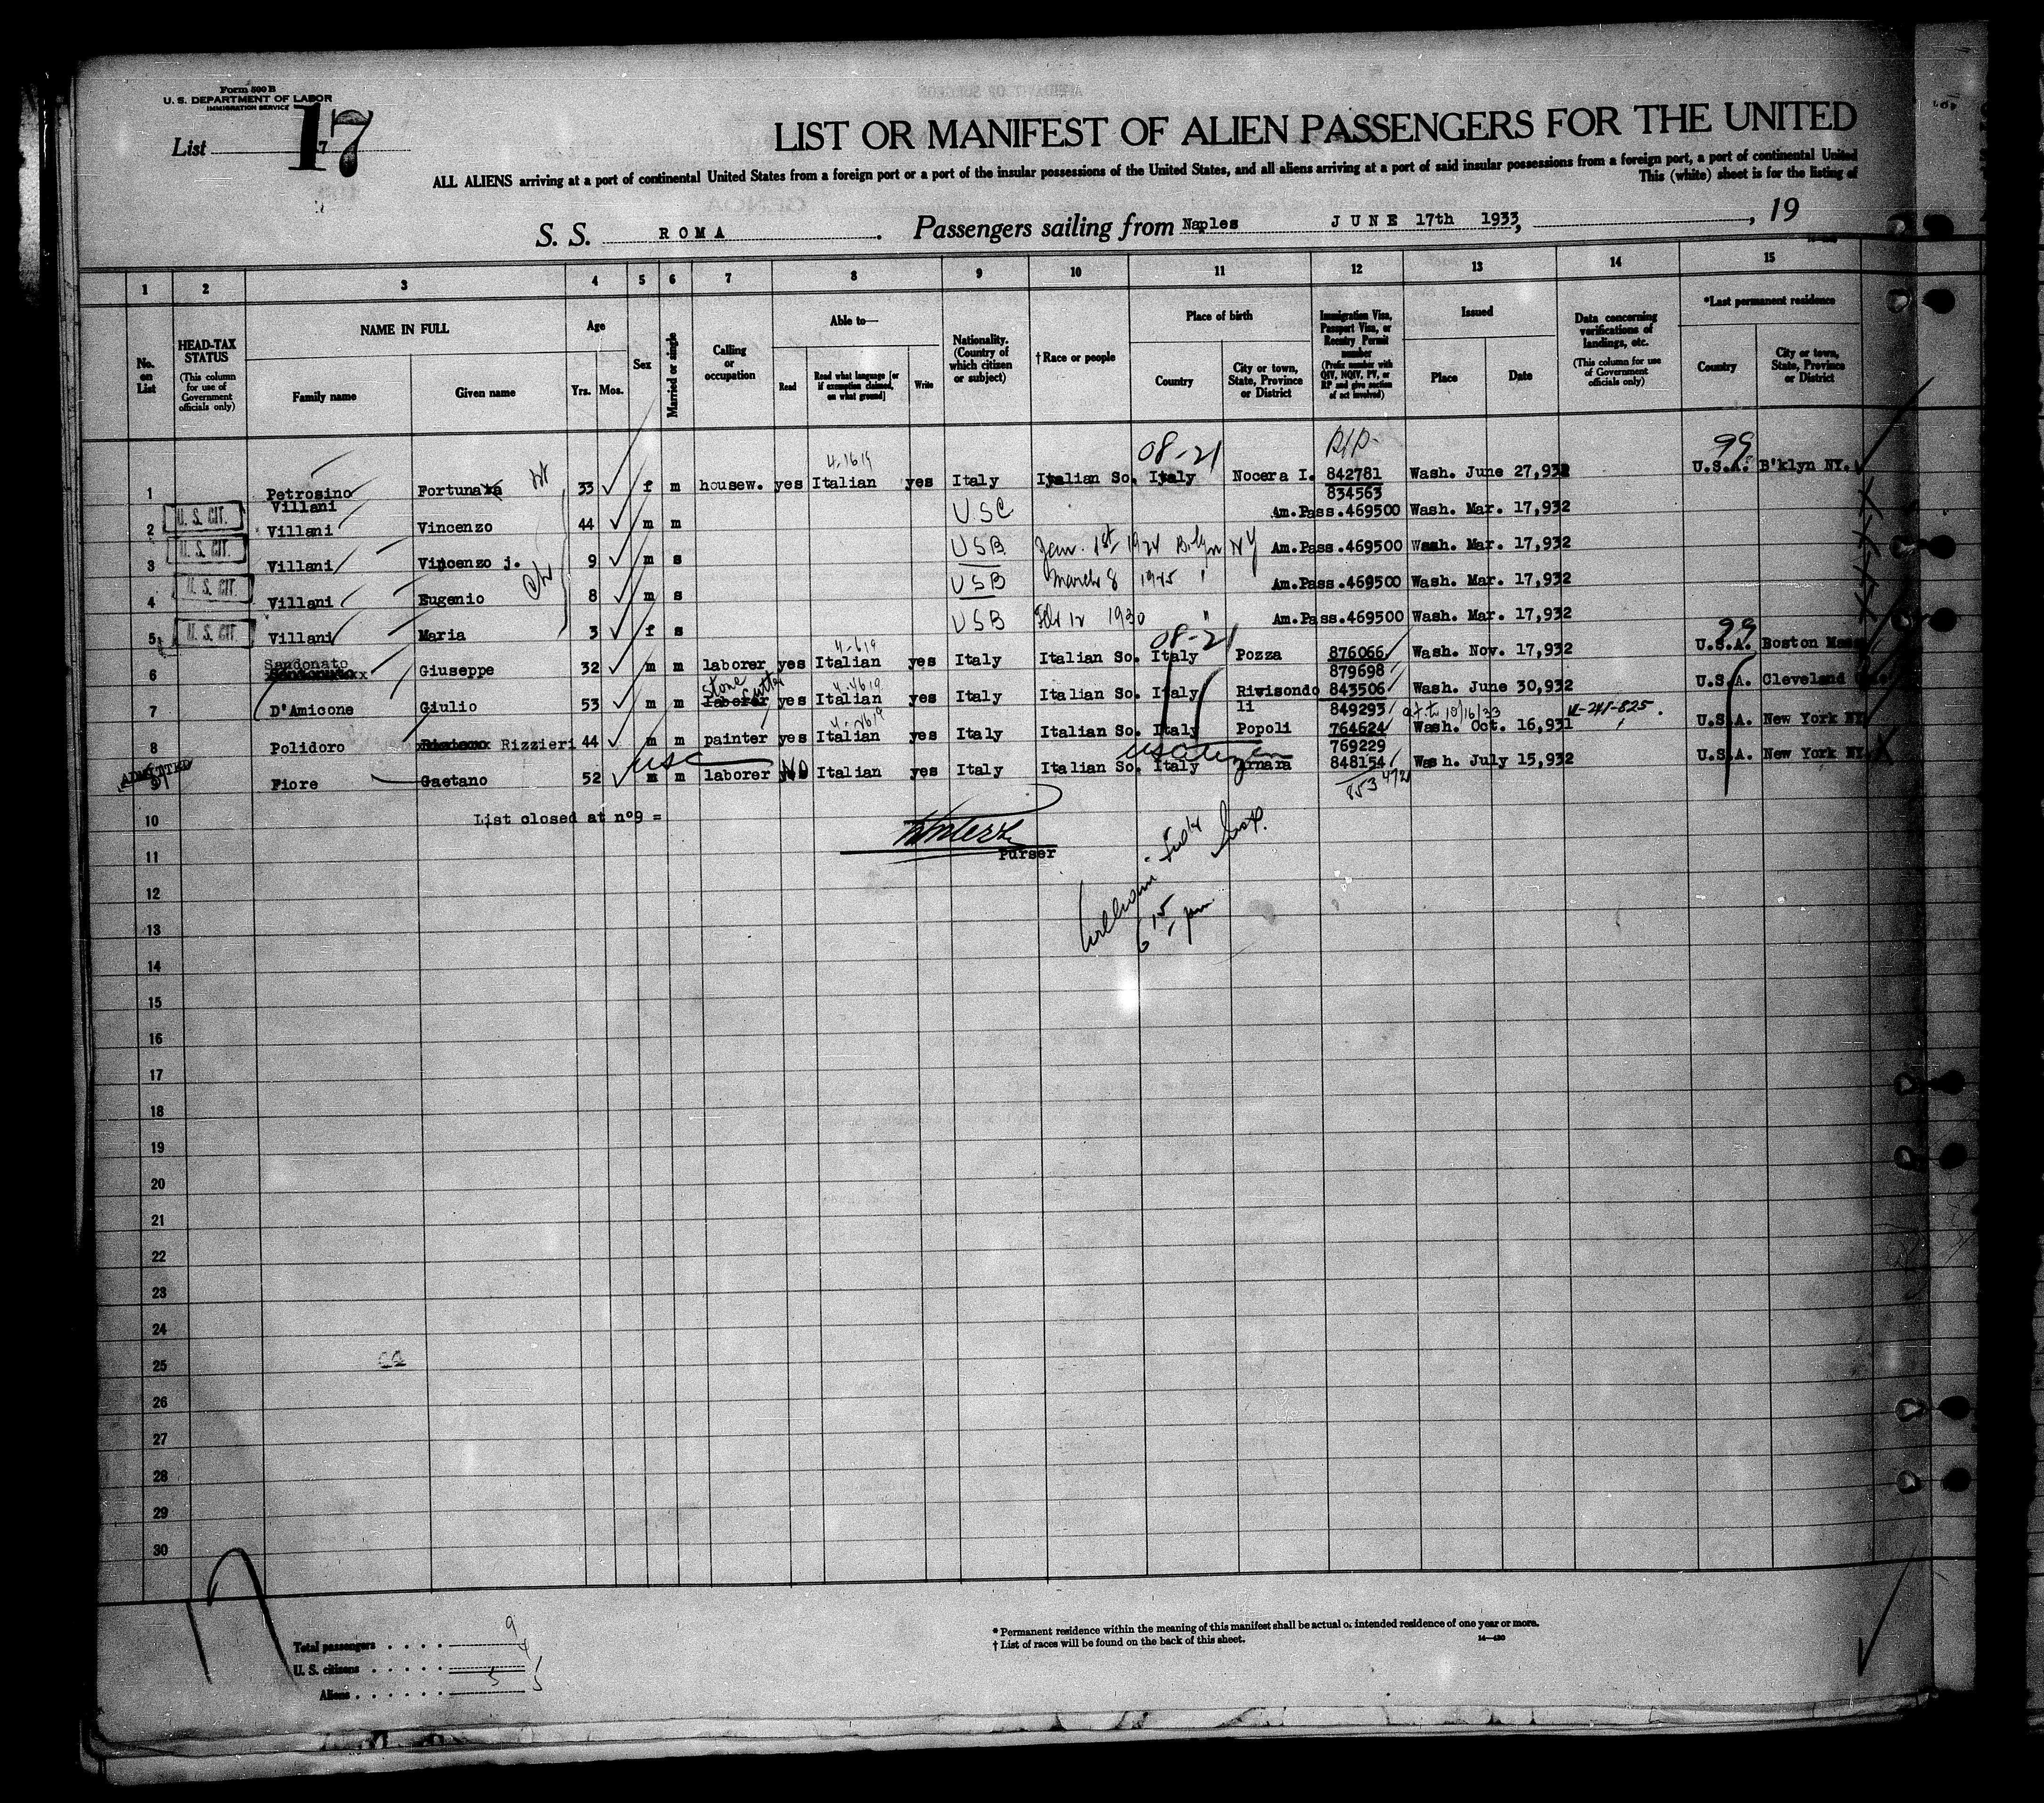 Form 500 B
U. S. DEPARTMENT OF LABOR
IMMIGRATION SERVICE
List 17
LIST OR MANIFEST OF ALIEN PASSENGERS FOR THE UNITED
ALL ALIENS arriving at a port of continental United States from a foreign port or a port of the insular possessions of the United States, and all aliens arriving at a port of said insular possessions from a foreign port, a port of continental United
This (white) sheet is for the listing of
S. S. ROMA. Passengers sailing from Naples JUNE 17th 1933, , 19
1 2 3 4 5 6 7 8 9 10 11 12 13 14 15
No. on List
HEAD-TAX STATUS (This column for use of Government officials only)
NAME IN FULL
Family name Given name
Age
Yrs. Mos.
Sex
Married or single
Calling or occupation
Able to—
Read
Read what language [or if exemption claimed, on what ground]
Write
Nationality. (Country of which citizen or subject)
†Race or people
Place of birth
Country
City or town, State, Province or District
Immigration Visa, Passport Visa, or Reentry Permit number (Prefix number with QIV, NQIV, PV, or RP and give section of act involved)
Issued
Place Date
Data concerning verifications of landings, etc. (This column for use of Government officials only)
*Last permanent residence
Country
City or town, State, Province or District
08-21 99
1 Petrosino Villani Fortunata 33 f m housew. yes Italian yes Italy Italian So. Italy Nocera I. 842781 834563 Wash. June 27,932 U.S.A. B'klyn NY.
2 U. S. CIT. Villani Vincenzo 44 m m USC Am.Pass.469500 Wash. Mar. 17,932
3 U. S. CIT. Villani Vincenzo j. 9 m s USB Jan. 1st 1924 Bklyn NY Am.Pass.469500 Wash. Mar. 17,932
4 U. S. CIT. Villani Eugenio 8 m s USB March 8 1925 " Am.Pass.469500 Wash. Mar. 17,932
5 U. S. CIT. Villani Maria 3 f s USB Feb 12 1930 " Am.Pass.469500 Wash. Mar. 17,932
08-21 99
6 Sandonato Giuseppe 32 m m laborer yes Italian yes Italy Italian So. Italy Pozza 876066 879698 Wash. Nov. 17,932 U.S.A. Boston Mass
7 D'Amicone Giulio 53 m m stone cutter laborer yes Italian yes Italy Italian So. Italy Rivisondo li 843506 849293 Wash. June 30,932 U.S.A. Cleveland
8 Polidoro Rizzieri 44 m m painter yes Italian yes Italy Italian So. Italy Popoli 764624 769229 Wash. Oct. 16,931 U.S.A. New York NY.
ADMITTED
9 Fiore Gaetano 52 usc m m laborer yes NO Italian yes Italy Italian So. Italy us citizen Arnara 848154 853472 Wash. July 15,932 U.S.A. New York NY.
10 List closed at n°9 =
Purser
11
12
13
14
15
16
17
18
19
20
21
22
23
24
25
26
27
28
29
30
Total passengers . . . . 9
U. S. citizens . . . . . . 4
Aliens . . . . . . 5 5
* Permanent residence within the meaning of this manifest shall be actual or intended residence of one year or more.
† List of races will be found on the back of this sheet. 14—420